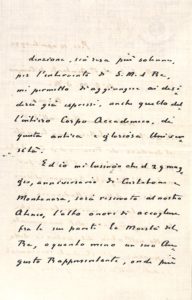 divazione, sia resa più solenne,
per l'intervento di S. M. il Re,
mi permetto di aggiungere ai desi-
derî già espressi, anche quello del-
l'intiero Corpo Accademico, di
questa antica e gloriosa Univer-
sità.
Ed io mi lusingo che il 29 mag-
gio, anniversario di Curtatone e
Montanara, sarà riservato al nostro
Ateneo, l'alto onore di accogliere
fra le sue pareti la Maestà del
Re, o quanto meno un suo Au-
gusto Rappresentante, onde più